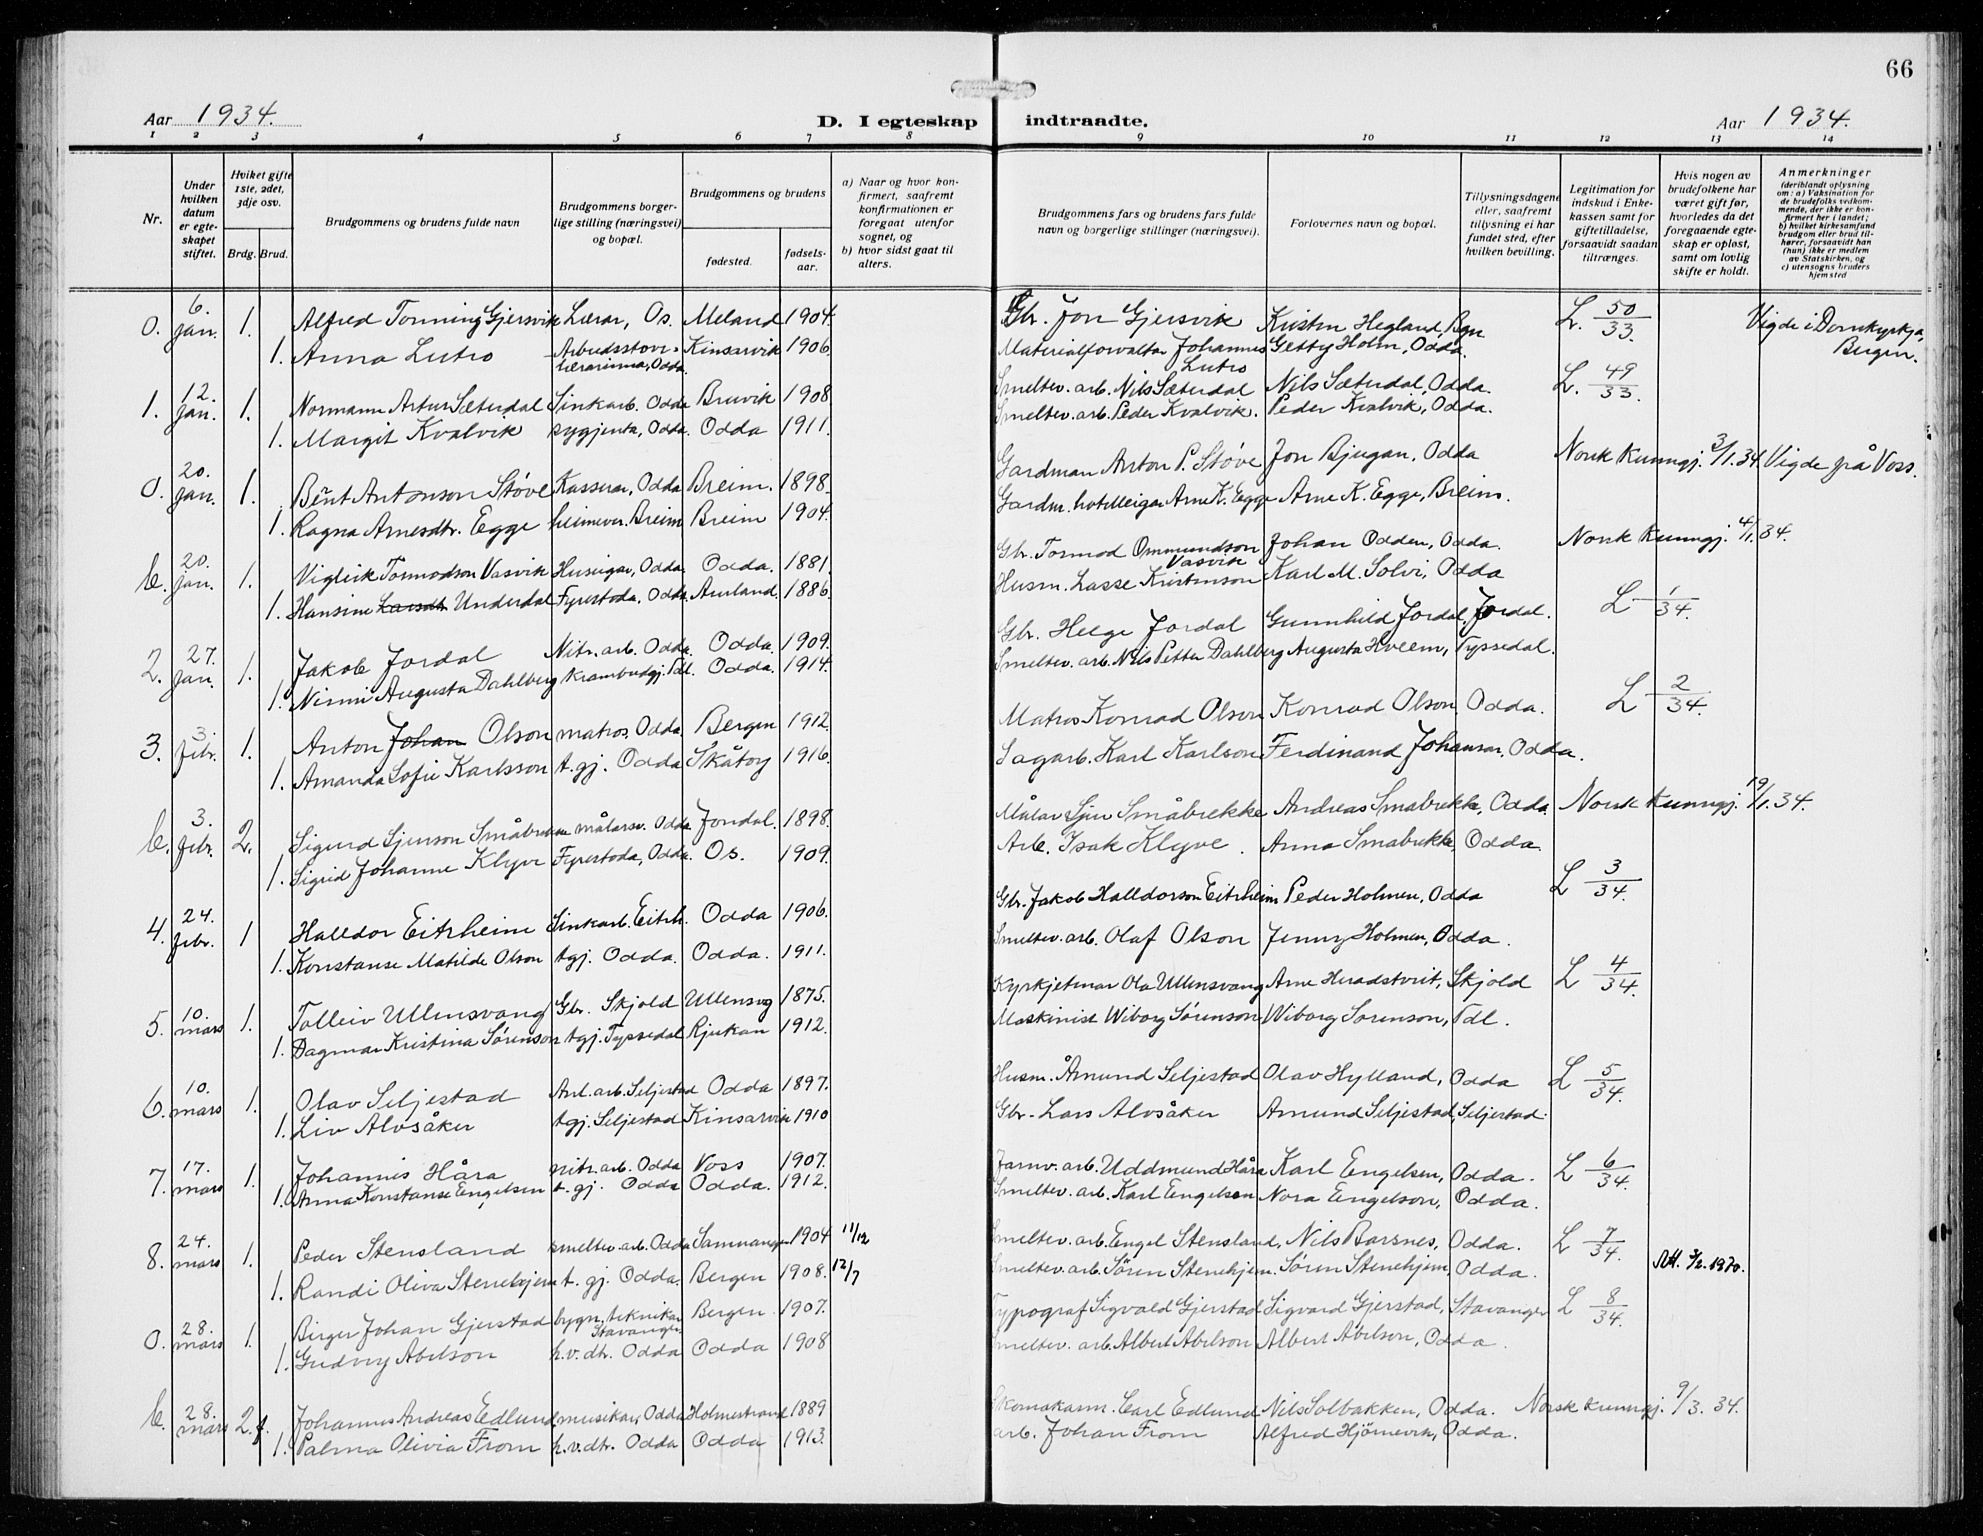 66
Aar 1934.
D. I egteskap indtraadte.
Aar 1934.
1 2 3 4 5 6 7 8 9 10 11 12 13 14
Nr.
Under hvilken datum er egteskapet stiftet.
Hvilket gifte 1ste, 2det, 3dje osv.
Brdg. Brud.
Brudgommens og brudens fulde navn
Brudgommens borgerlige stilling (næringsvei) og bopæl.
Brudgommens og brudens
fødested.
fødselsaar.
a) Naar og hvor konfirmert, saafremt konfirmationen er foregaat utenfor sognet, og
b) hvor sidst gaat til alters.
Brudgommens fars og brudens fars fulde navn og borgerlige stillinger (næringsvei).
Forlovernes navn og bopæl.
Tillysningsdagene eller, saafremt tillysning ei har fundet sted, efter hvilken bevilling.
Legitimation for indskud i Enkekassen samt for giftetilladelse, forsaavidt saadan tiltrænges.
Hvis nogen av brudefolkene har været gift før, hvorledes da det foregaaende egteskap er opløst, samt om lovlig skifte er holdt.
Anmerkninger
(deriblandt oplysning om: a) Vaksination for de brudefolks vedkommende, der ikke er konfirmert her i landet; b) hvilket kirkesamfund brudgom eller brud tilhører, forsaavidt han (hun) ikke er medlem av Statskirken, og c) utensogns bruders hjemsted
0. 6. jan. 1. Alfred Tonning Gjersvik Lærar, Os. Meland 1904. Gbr. Jon Gjersvik Kristen Hegland, Bgn L. 50/33. Vigde i Domkyrkja, Bergen.
1. Anna Lutro Arbeidsstovelærarinna, Odda. Kinsarvik 1906. Materialforvaltar Johannes Lutro Getty Holm, Odda.
1. 12. jan. 1. Normann Artur Sæterdal Sinkarb. Odda Bruvik 1908 Smeltev. arb. Nils Sæterdal Nils Sæterdal, Odda. L. 49/33.
1. Margit Kvalvik sygjenta, Odda. Odda 1911. Smeltev. arb. Peder Kvalvik. Peder Kvalvik, Odda.
0. 20. jan. 1. Bernt Antonson Støve Kasserar, Odda Breim. 1898. Gardman Anton P. Støve Jon Bjugan, Odda Norsk Kunngj. 3/1.34. Vigde på Voss.
1. Ragna Arnesdtr. Egge heimever. Breim Breim 1904. Gardm. hotelleigar Arne K. Egge Arne K. Egge, Breim.
b. 20. jan. 1. Vigleik Tormodson Vasvik Huseigar, Odda Odda. 1881. Gbr. Tormod Ommundson Vasvik Johan Odden, Odda. Norsk Kunngj. 4/1.34.
1. Hansine Larsdt. Underdal Fyrestoda, Odda. Aurland 1886. Husm. Lasse Kristenson Karl M. Solvi, Odda
2. 27. jan. 1. Jakob Jordal Nitr. arb. Odda. Odda. 1909. Gbr. Helge Jordal Gunnhild Jordal, Jordal. L 1/34.
1. Ninni Augusta Dahlberg krambudgj. Tdl. Odda. 1914. Smeltev. arb. Nils Petter Dahlberg Augusta Hveem, Tyssedal.
3. 3. febr. 1. Anton Johan Olson matros, Odda. Bergen 1912. Matros Konrad Olson Konrad Olson, Odda. L 2/34.
1. Amanda Sofie Karlsson t. gj. Odda Skåtøy 1916. Sagarb. Karl Karlson Ferdinand Johanson, Odda.
b. 3. febr. 2. Sigurd Sjurson Småbrekke målarsv. Odda Jondal. 1898. Målar Sjur Småbrekke Andreas Småbrekke, Odda. Norsk Kunngj. 19/1.34.
1. Sigrid Johanne Klyve Fyrestoda, Odda. Os. 1909. Arb. Isak Klyve. Anna Småbrekke, Odda.
4. 24. febr. 1 Halldor Eitrheim Sinkarb. Eitrh. Odda 1906. Gbr. Jakob Halldorson Eitrheim Peder Holmen, Odda L 3/34.
1. Konstanse Matilde Olson tgj. Odda. Odda. 1911. Smeltev. arb. Olaf Olson Jenny Holmen, Odda.
5. 10. mars 1. Tolleiv Ullensvang Gbr. Skjold Ullensvg 1875. Kyrkjetenar Ola Ullensvang Arne Heradstveit, Skjold L 4/34.
1. Dagmar Kristina Sørenson tgj. Tyssedal Rjukan 1912. Maskinist Wiborg Sørenson Wiborg Sørenson, Tdl.
6. 10. mars 1. Olav Seljestad Anl. arb. Seljestad Odda 1897. Husm. Åmund Seljestad Olav Hylland, Odda L 5/34.
1. Liv Alvsåker tgj. Seljestad Kinsarvik 1910 Gbr. Lars Alvsåker Åmund Seljestad, Seljestad.
7. 17. mars 1. Johannes Håra nitr. arb. Odda Voss 1907. Jarnv. arb. Uddmund Håra Karl Engelsen, Odda. L 6/34.
1. Anna Konstanse Engelsen t. gj. Odda Odda. 1912. Smeltev. arb. Karl Engelsen Nora Engelson, Odda.
8. 24. mars 1. Peder Stensland smeltev. arb. Odda Samnanger 1904 11/12 Smeltev. arb. Engel Stensland, Nils Børsnes, Odda. L 7/34.
1. Randi Oliva Stenehjem t. gj. Odda. Bergen 1908. 12/7 Smeltev. arb. Søren Stenehjem. Søren Stenehjem, Odda. 3/2.1970.
0. 28. mars 1. Birger Johan Gjerstad bygn. teknikar Stavanger Bergen 1907. Typograf Sigvald Gjerstad Sigvard Gjerstad, Stavanger L 8/34.
1. Gudny Abelson h.v.dtr. Odda Odda 1908 Smeltev. arb. Albert Abelson Albert Abelson, Odda.
b. 28. mars 2. f. Johannes Andreas Edlund musikar, Odda Holmestrand 1889 Skomakarm. Carl Edlund Nils Solbakken, Odda. Norsk kunngj. 9/3.34.
1. Palma Olivia From h.v.dtr. Odda Odda 1913. arb. Johan From Alfred Hjørnevik, Odda.